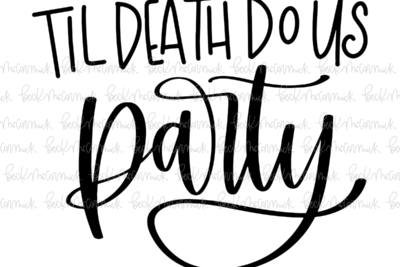 TIL DEATH DO US
party